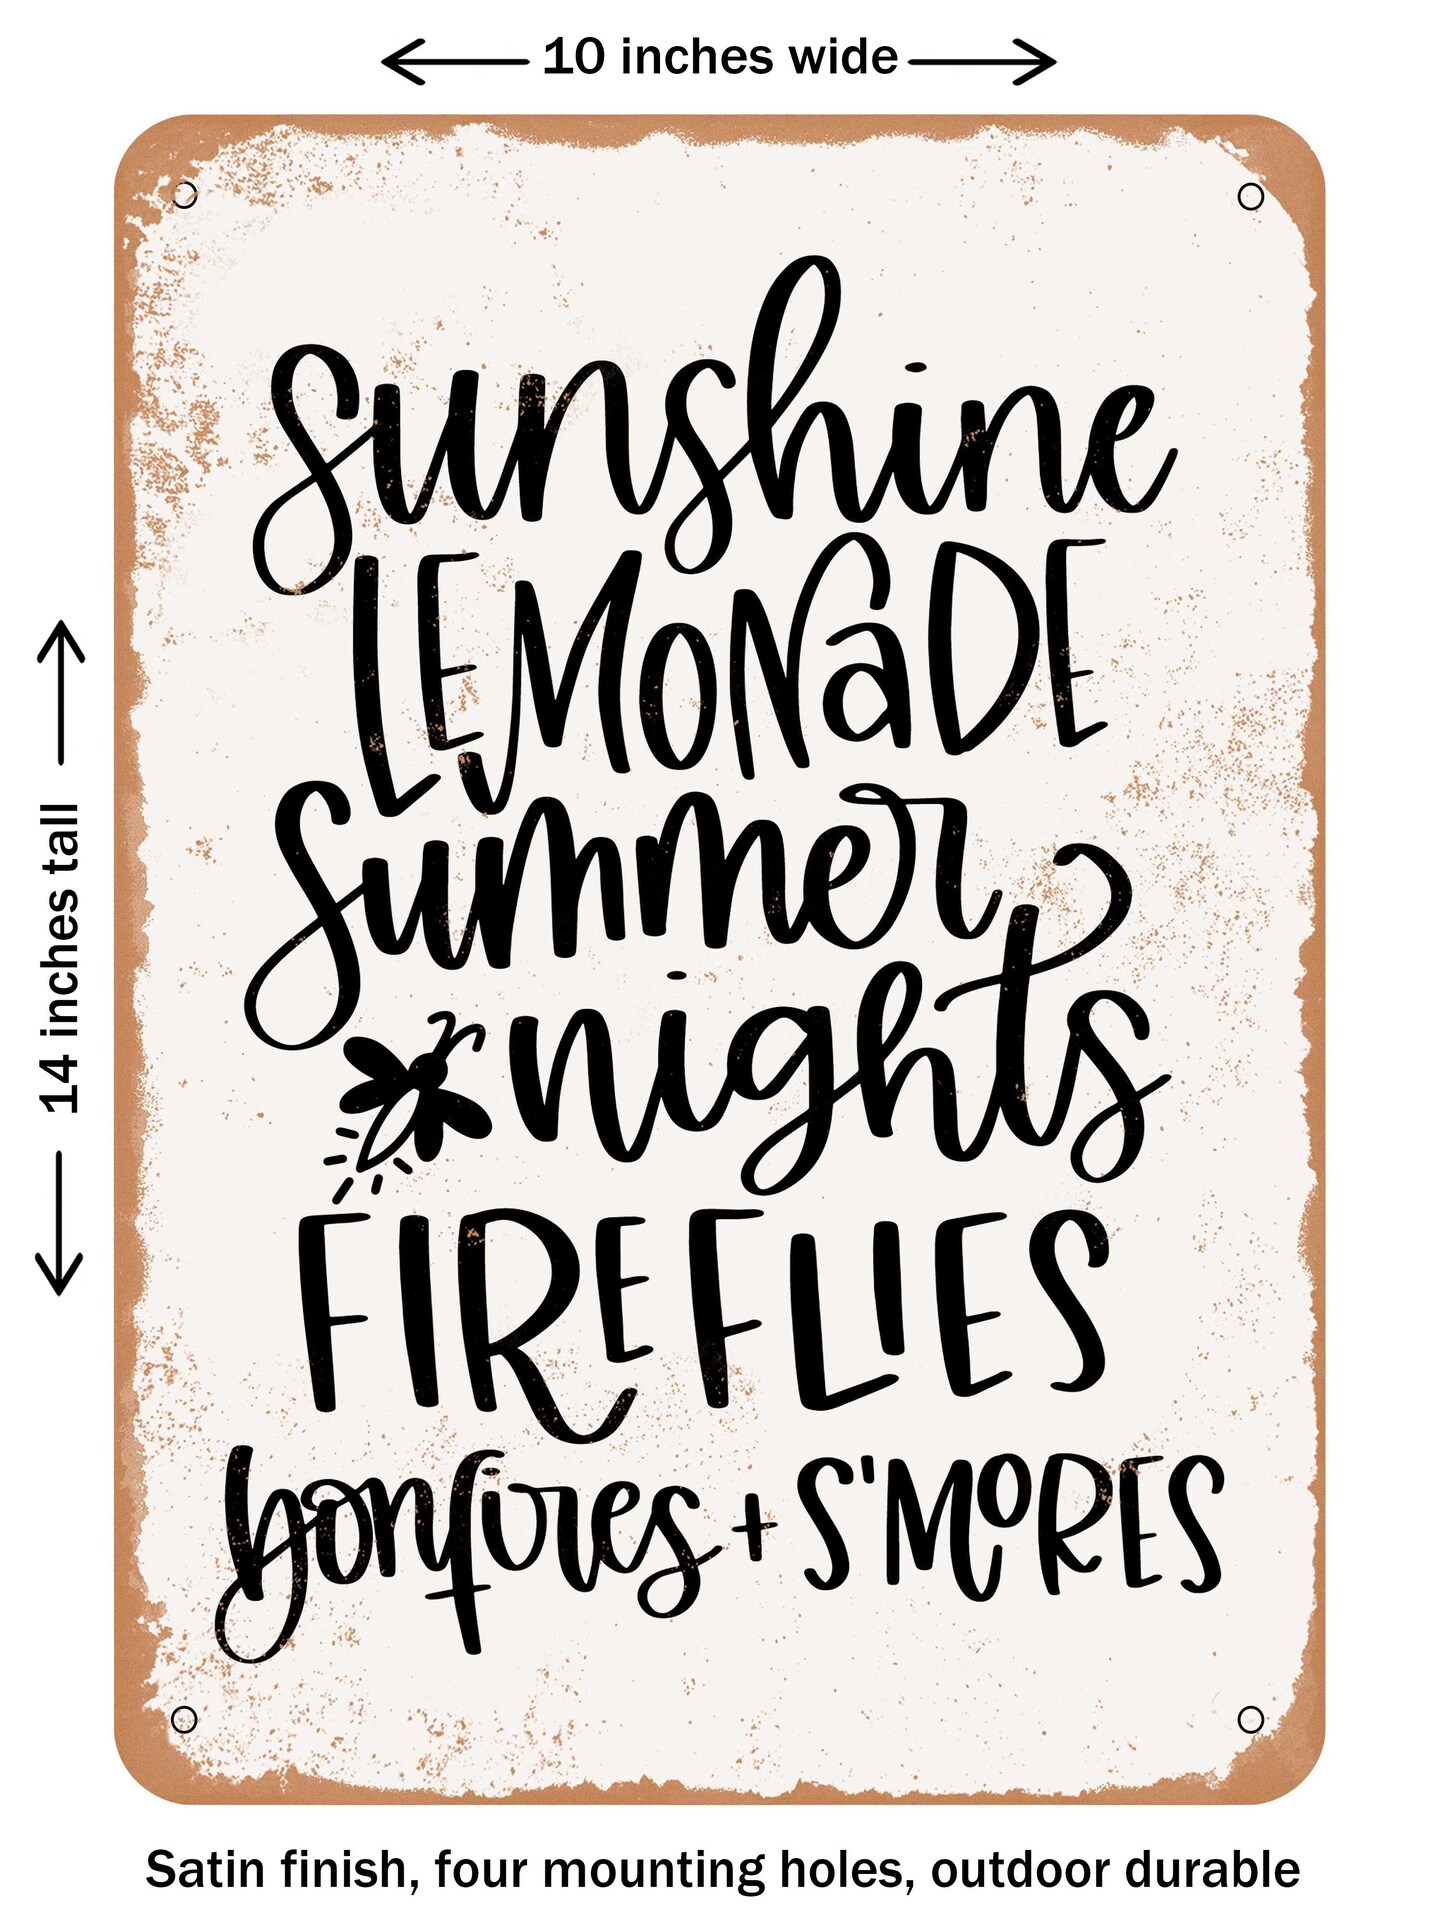 10 inches wide
14 inches tall
sunshine
LEMONaDE
summer
nights
FIREFLIES
bonfires + S'MORES
Satin finish, four mounting holes, outdoor durable